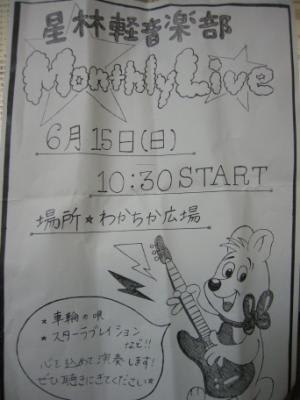 星林軽音楽部
Monthly Live
6月15日(日)
10:30 START
場所★わかちか広場
★車輪の唄
★スターラブレイション
など!!
心を込めて演奏します!
ぜひ聴きにきてください★